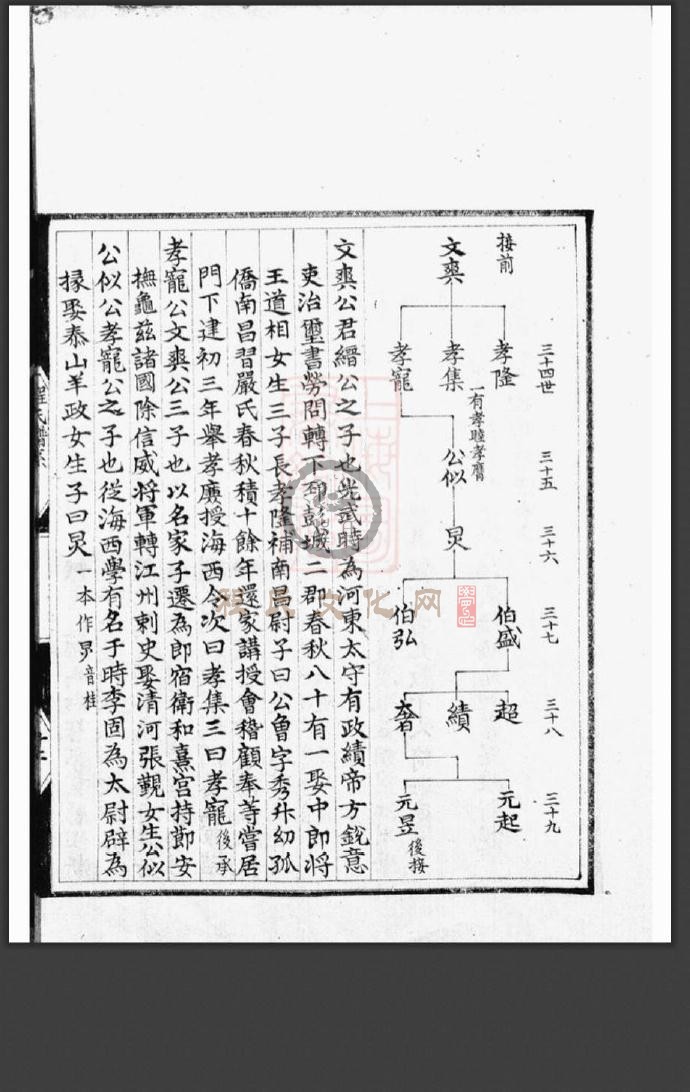 接前
三十四世
三十五
三十六
三十七
三十八
三十九
文奭
孝隆
孝集
孝寵
一有孝睦孝膺
公似
炅
伯盛
伯弘
超
績
奢
元起
元昱
後接
文奭公君縉公之子也光武時為河東太守有政績帝方銳意
吏治璽書勞問轉下邳彭城二郡春秋八十有一娶中郎將
王道相女生三子長孝隆補南昌尉子曰公魯字秀升幼孤
僑南昌習嚴氏春秋積十餘年還家講授會稽顧奉等嘗居
門下建初三年舉孝廉授海西令次曰孝集三曰孝寵後承
孝寵公文奭公三子也以名家子遷為郎宿衛和熹宮持節安
撫龜茲諸國除信威將軍轉江州刺史娶清河張觀女生公似
公似公孝寵公之子也從海西學有名于時李固為太尉辟為
掾娶泰山羊政女生子曰炅一本作炅音桂
程氏譜系
家父文化网